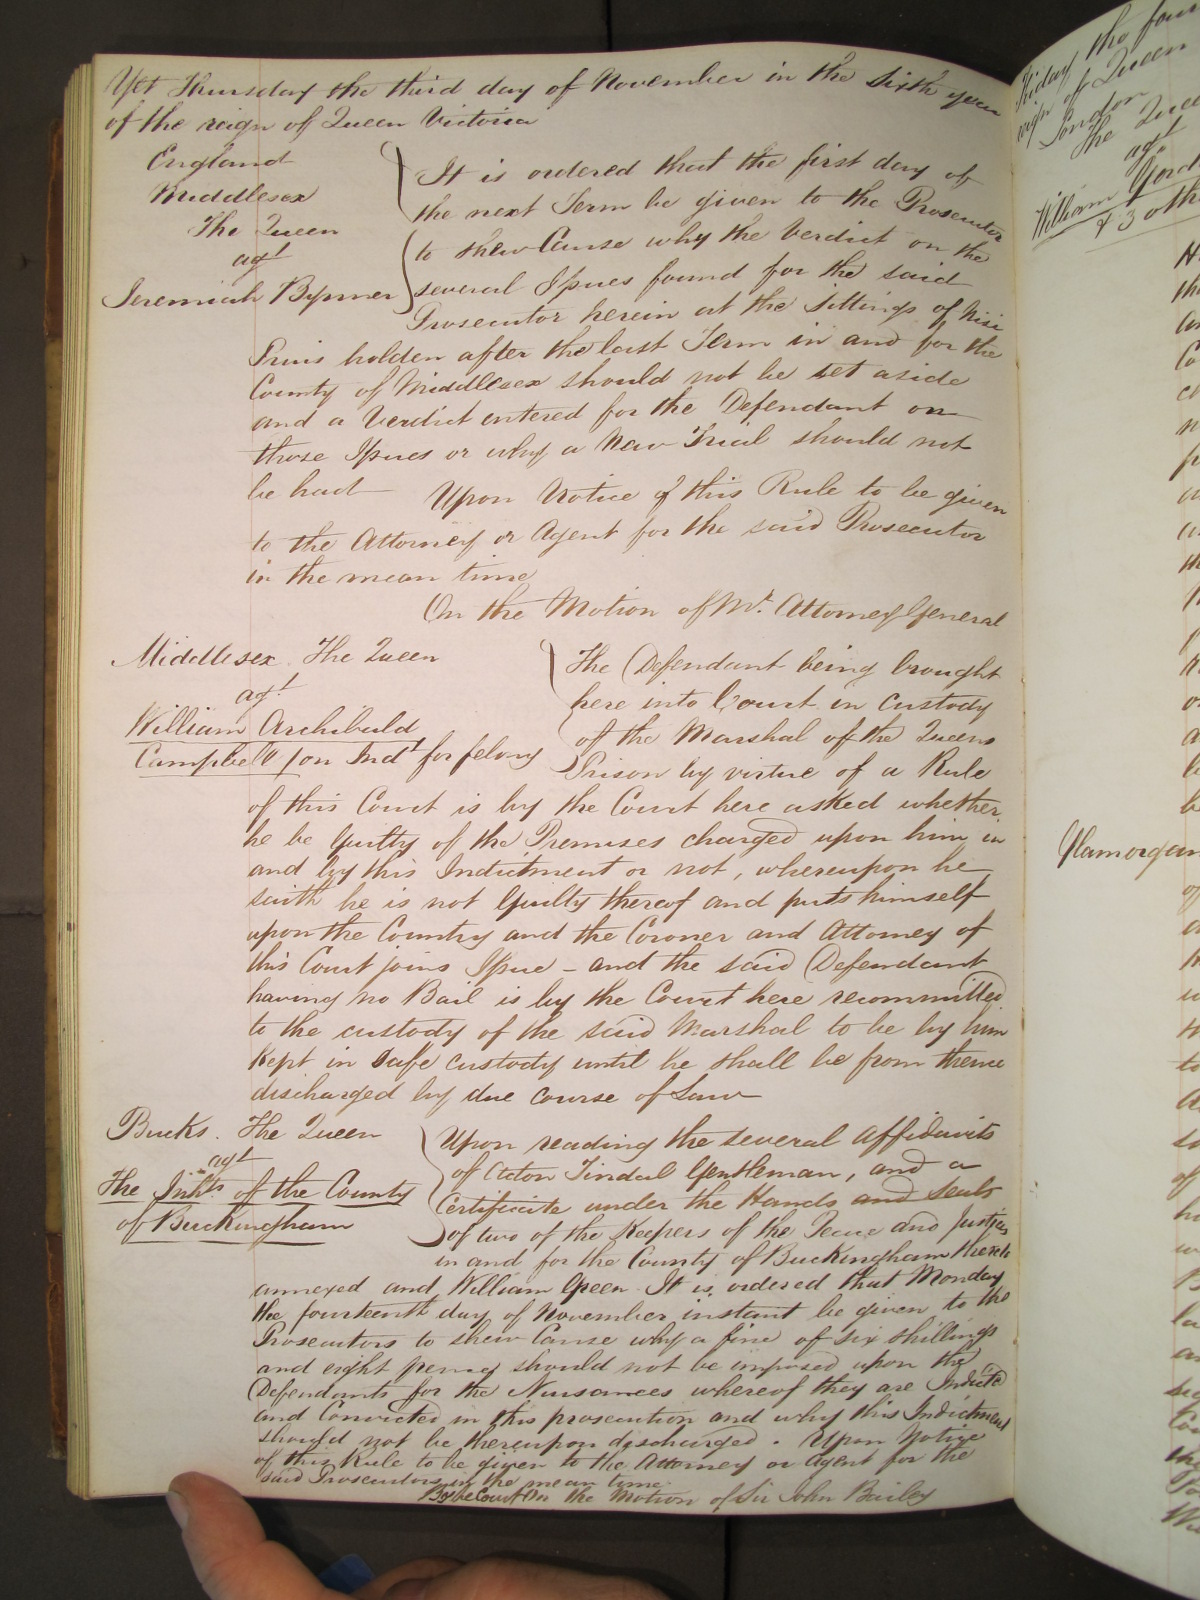 Yet Thursday the third day of November in the Sixth year
of the reign of Queen Victoria
England
Middlesex
The Queen
agt
Jeremiah Bymner
It is ordered that the first day of
the next Term be given to the Prosecutor
to shew Cause why the Verdict on the
several Issues found for the said
Prosecutor herein at the Sittings of Nisi
Prius holden after the last Term in and for the
County of Middlesex should not be set aside
and a Verdict entered for the Defendant on
those Issues or why a New Trial should not
be had Upon Notice of this Rule to be given
to the Attorney or Agent for the said Prosecutor
in the mean time
On the Motion of Mr. Attorney General
Middlesex. The Queen
agt
William Archibald
Campbell (on Indt for felony
The Defendant being brought
here into Court in custody
of the Marshal of the Queens
Prison by virtue of a Rule
of this Court is by the Court here asked whether
he be Guilty of the Premises charged upon him in
and by this Indictment or not, whereupon he
saith he is not Guilty thereof and puts himself
upon the Country and the Coroner and Attorney of
this Court joins Issue - and the said Defendant
having no Bail is by the Court here recommitted
to the custody of the said Marshal to be by him
kept in safe custody until he shall be from thence
discharged by due course of Law
Bucks. The Queen
agt
The Inhts of the County
of Buckingham
Upon reading the several Affidavits
of Acton Tindal Gentleman, and a
Certificate under the Hands and Seals
of two of the Keepers of the Peace and Justices
in and for the County of Buckingham thereto
annexed and William Green. It is ordered that Monday
the fourteenth day of November instant be given to the
Prosecutors to shew Cause why a fine of six shillings
and eight pence should not be imposed upon the
Defendants for the Nuisances whereof they are Indicted
and Convicted in this prosecution and why this Indictment
should not be thereupon discharged. Upon Notice
of this Rule to be given to the Attorney or Agent for the
said Prosecutors in the mean time
By the Court On the Motion of Sir John Bailey
Friday the four
reign of Queen
London
The Quee
agt
William
& 3 oth
Glamorgan